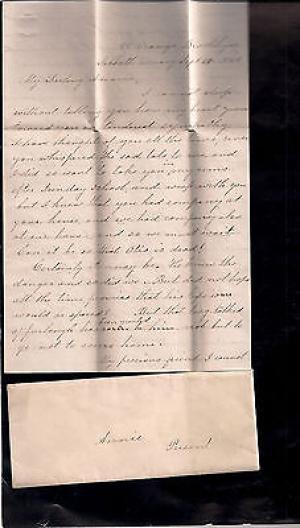 My Darling Annie,
I cannot sleep
without telling you how my heart goes
toward you in tenderest sympathy.
I have thought of you all the time, ever
you whispered the sad tale to me, and
I did so want to take you in my arms
after Sunday School, and weep with you
but I knew that you had company at
your house and we had company also
at our house, and so we must wait.
Can it be so that Otis is dead!
Certainly it may be. He knew the
danger and so did we. But did not hope
all the time promise that his life
would be spared? But that long talked
of furlough has come to him, not but to
go not to come home!
My precious friend I cannot
Annie
Present